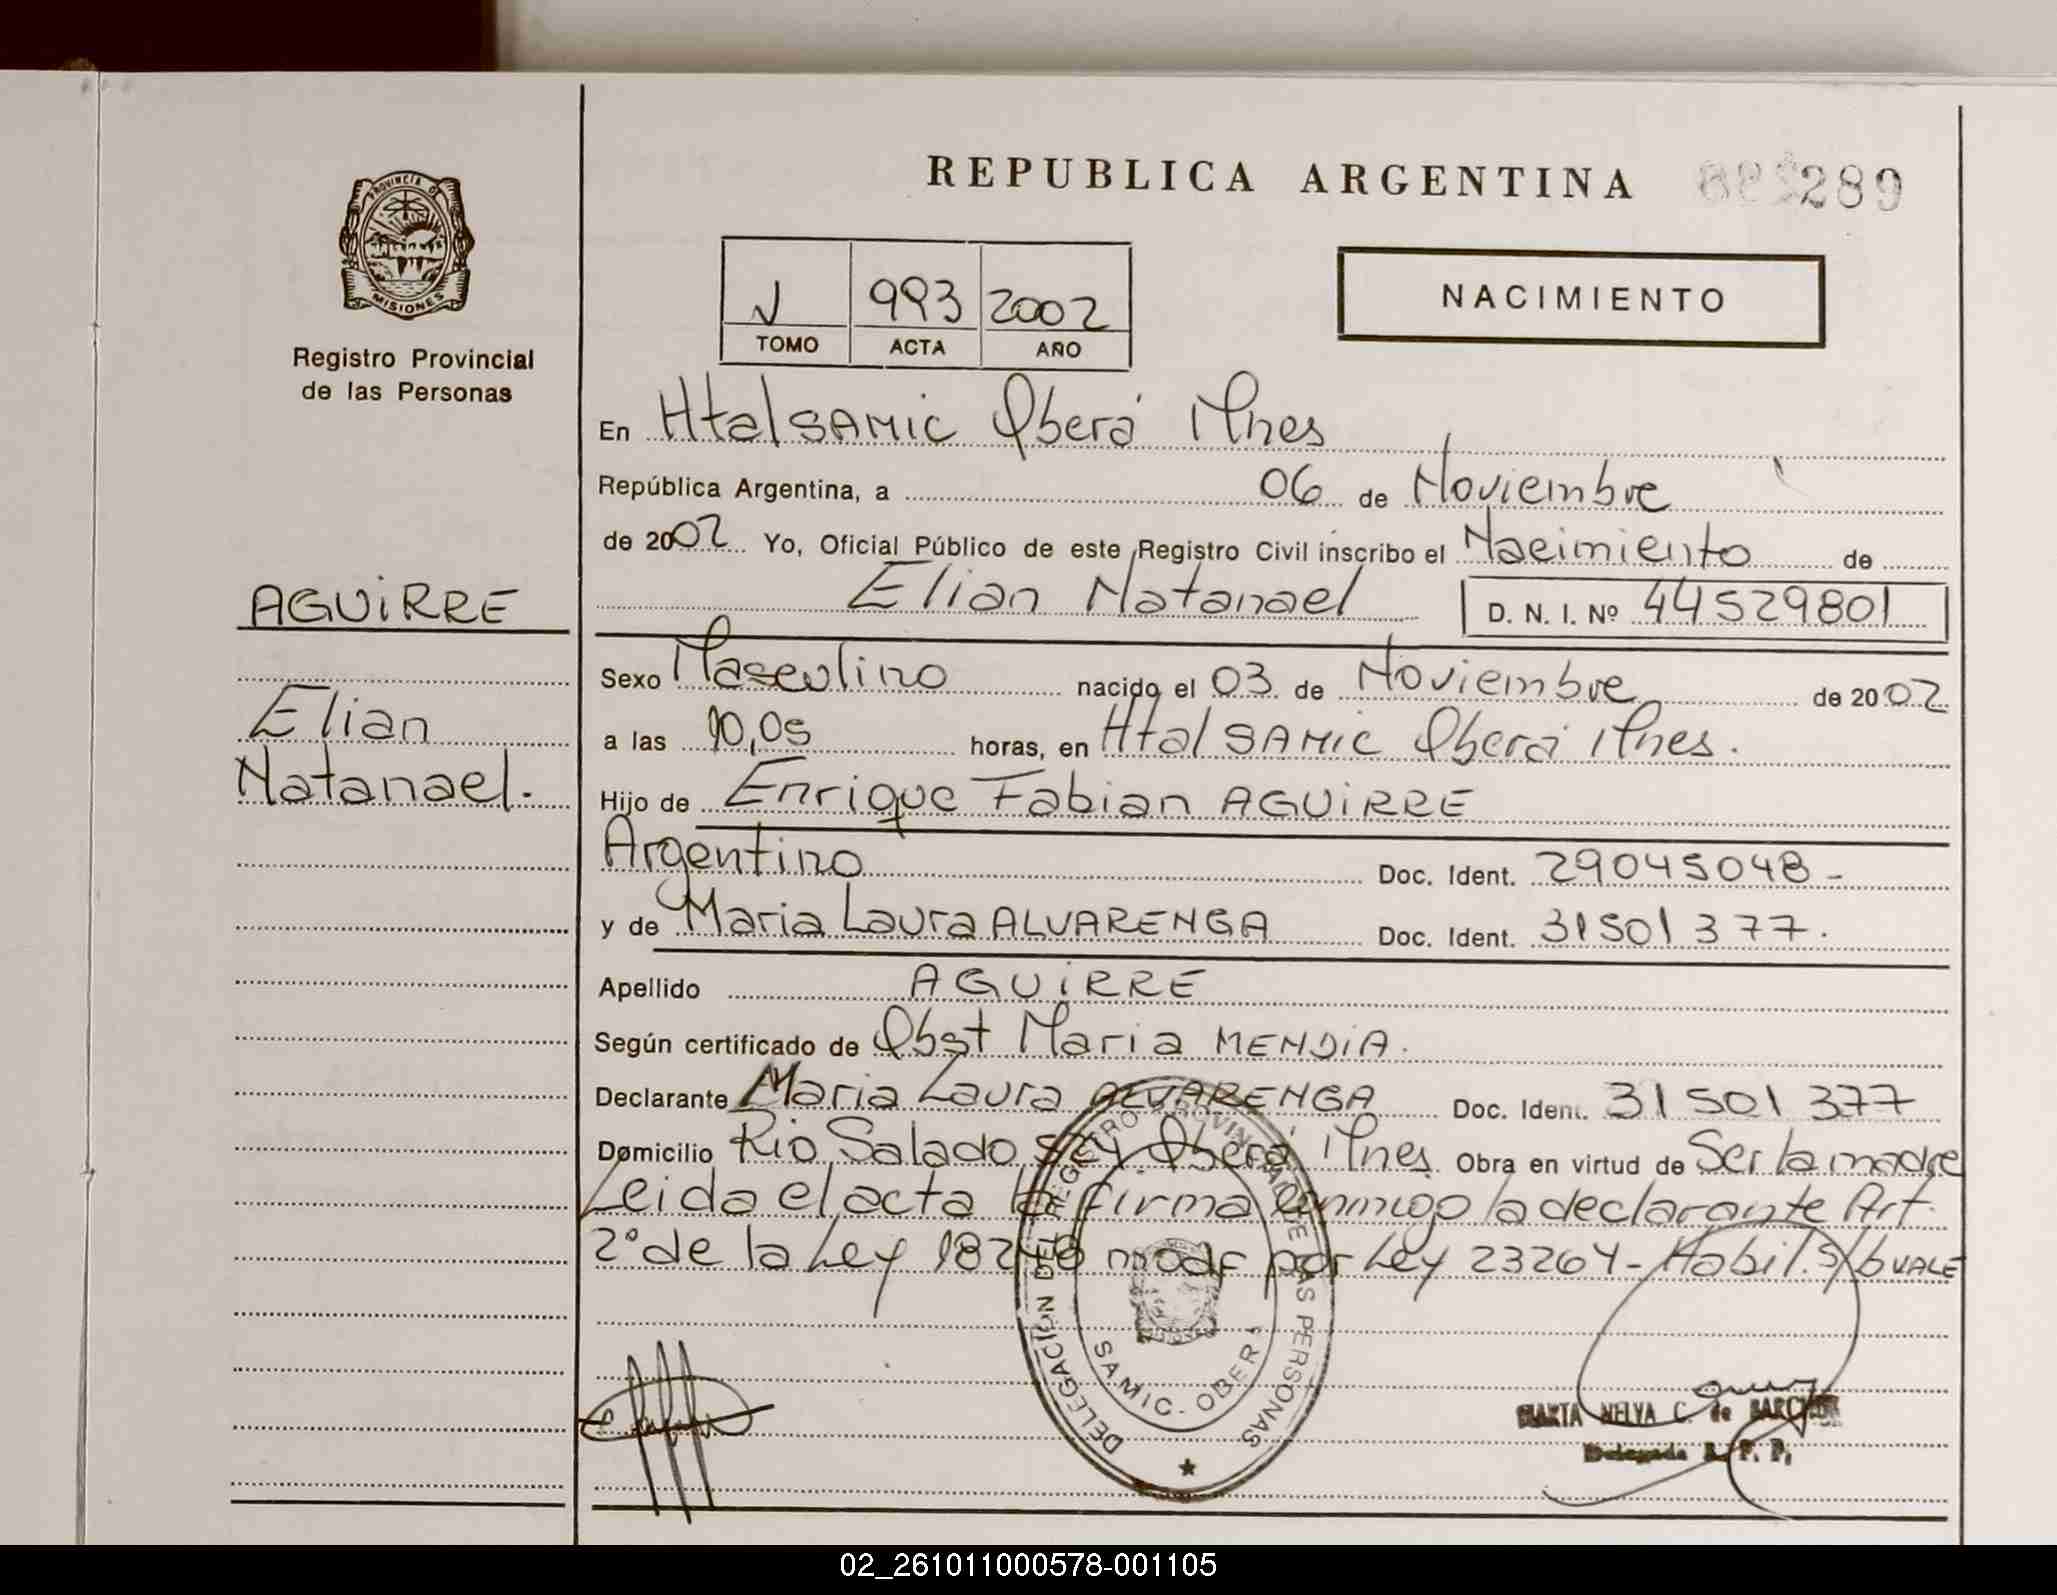 REPUBLICA ARGENTINA 289
PROVINCIA D
MISIONES
Registro Provincial
de las Personas
993 2002
TOMO ACTA AÑO
NACIMIENTO
En Htal SAMIC Oberá Mnes
República Argentina, a 06 de Noviembre
de 2002 Yo, Oficial Público de este Registro Civil inscribo el Nacimiento de
Elian Natanael D. N. I. Nº 44529801
AGUiRRE
Elian
Natanael.
Sexo Masculino nacido el 03 de Noviembre de 2002
a las 10,05 horas, en Htal SAMIC Oberá Mnes.
Hijo de Enrique Fabian AGUiRRE
Argentino Doc. Ident. 29045048-
y de Maria Laura ALVARENGA Doc. Ident. 31501377.
Apellido AGUiRRE
Según certificado de Obst Maria MENDiA.
Declarante Maria Laura ALVARENGA Doc. Ident. 31501377
Domicilio Rio Salado Oberá Mnes Obra en virtud de Ser la madre
Leida el acta la firma conmigo la declarante Art.
2º de la Ley 18248 modf por Ley 23264- Habil. VALE
DELEGACIÓN DEL REGISTRO PROVINCIAL DE LAS PERSONAS
SAMIC - OBERÁ
MARTA NELVA C. de
Delegada R. P. P.
02_261011000578-001105